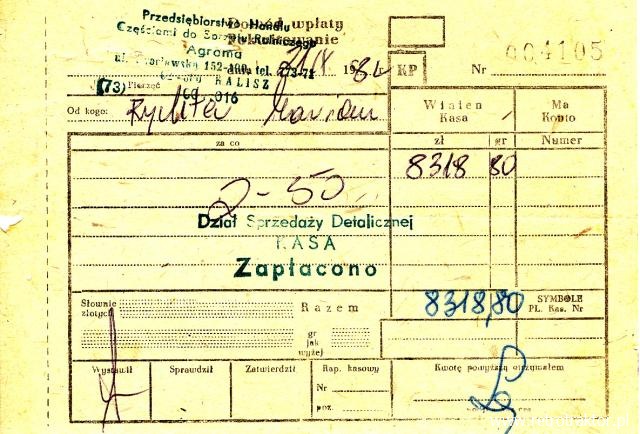 Przedsiębiorstwo Handlu
Częściami do Sprzętu Rolniczego
Agroma
Dowód wpłaty
Pokwitowanie
152-190
KALISZ
dnia
tel. 273-71
19 84
KP
Nr 004105
(73)
Pieczęć
016
Od kogo: Rychter Marian
Winien
Kasa
Ma
Konto
za co
zł gr Numer
8318 80
2-50
Dział Sprzedaży Detalicznej
KASA
Zapłacono
Słownie
złotych
Razem
8318,80
SYMBOLE
PL. Kas. Nr
gr
jak
wyżej
Wystawił Sprawdził Zatwierdził Rap. kasowy Kwotę powyższą otrzymałem
Nr
poz.